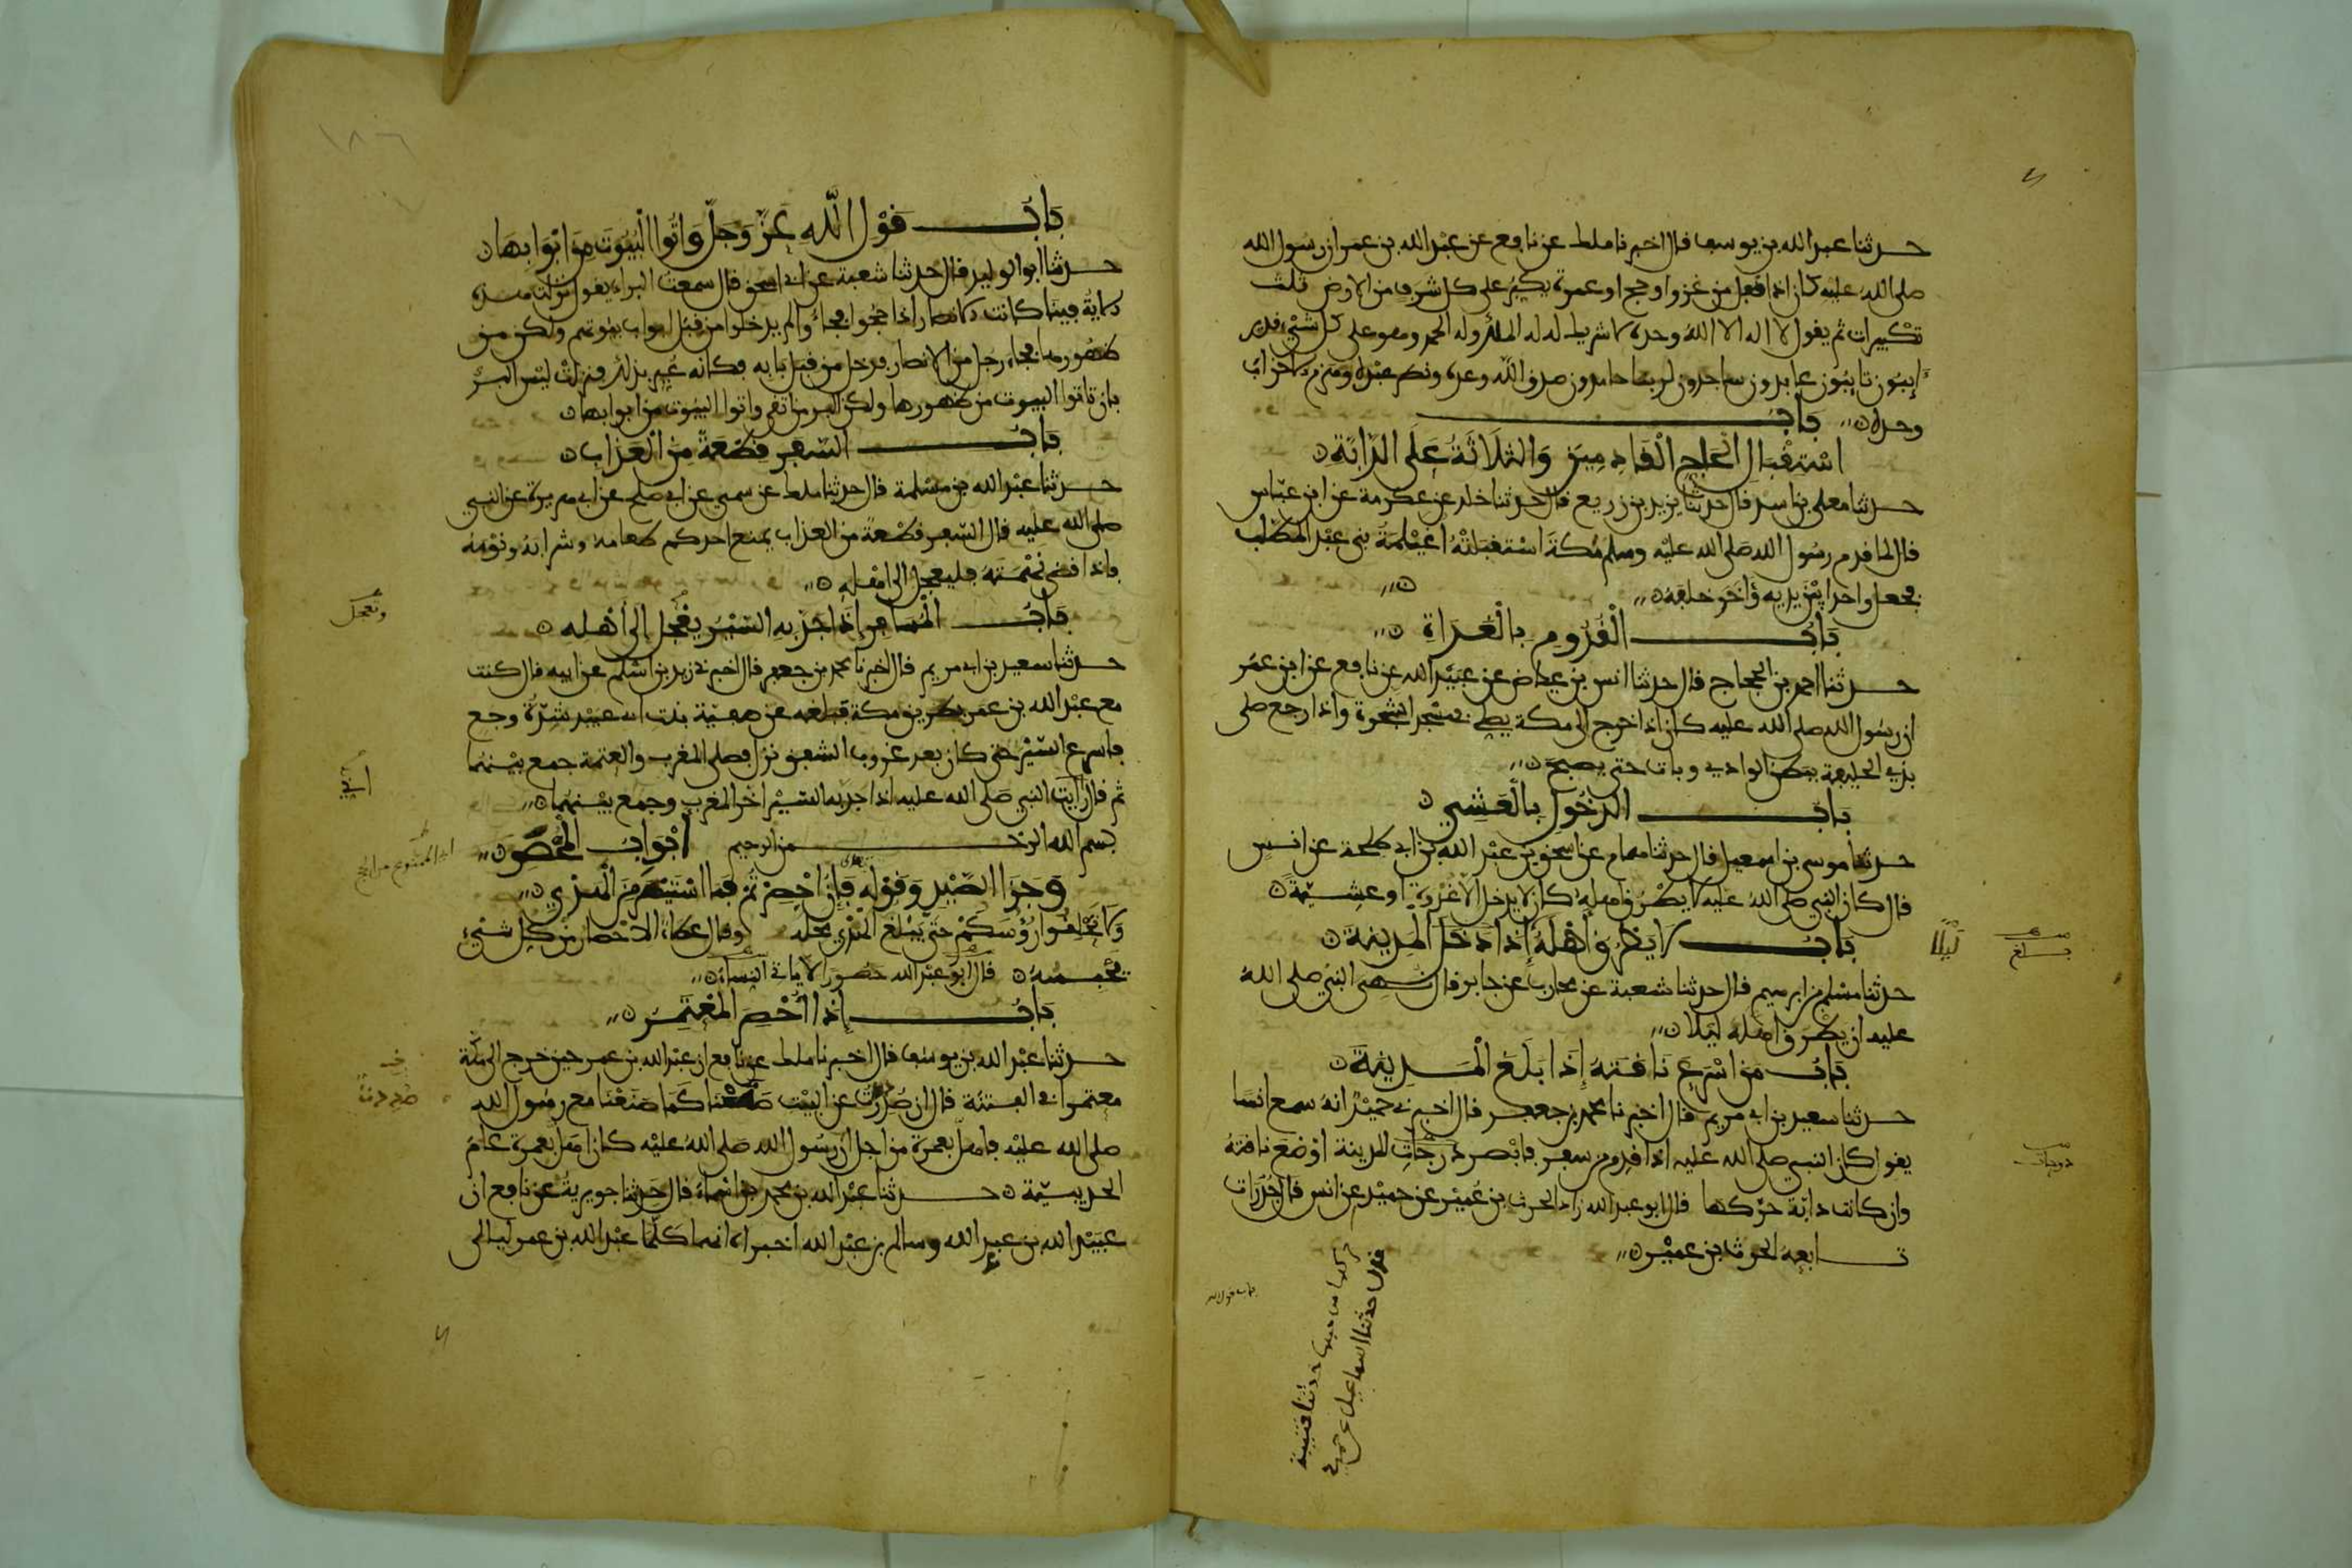 حدثنا عبد الله بن يوسف قال اخبرنا ملك عن نافع عن عبد الله بن عمر ان رسول الله
صلى الله عليه كان اذا قفل من غزو او حج او عمرة يكبر على كل شرف من الارض ثلث
تكبيرات ثم يقول لا اله الا الله وحده لا شريك له له الملك وله الحمد وهو على كل شيء قدير
ءايبون تايبون عابدون ساجدون لربنا حامدون صدق الله وعده ونصر عبده وهزم الاحزاب
وحده باب
استقبال الحاج القادمين والثلاثة على الدابة
حدثنا معلى بن اسد قال حدثنا يزيد بن زريع قال حدثنا خلد عن عكرمة عن ابن عباس
قال لما قدم رسول الله صلى الله عليه وسلم مكة استقبلته اغيلمة بني عبد المطلب
فحمل واحدا بين يديه وءاخر خلفه
باب القدوم بالغداة
حدثنا احمد بن الحجاج قال حدثنا انس بن عياض عن عبيد الله عن نافع عن ابن عمر
ان رسول الله صلى الله عليه كان اذا خرج الى مكة يصلي في مسجد الشجرة واذا رجع صلى
بذي الحليفة ببطن الوادي وبات حتى يصبح
باب الدخول بالعشي
حدثنا موسى بن اسمعيل قال حدثنا همام عن اسحق بن عبد الله بن ابي طلحة عن انس
قال كان النبي صلى الله عليه لا يطرق اهله كان لا يدخل الا غدوة او عشية
باب لا يطرق اهله اذا دخل المدينة
ليلا
بلغ
حدثنا مسلم بن ابرهيم قال حدثنا شعبة عن محارب عن جابر قال نهى النبي صلى الله
عليه ان يطرق اهله ليلا
باب من اسرع ناقته إذا بلغ المدينة
حدثنا سعيد بن ابي مريم قال اخبرنا محمد بن جعفر قال اخبرني حميد انه سمع انسا
يقول كان النبي صلى الله عليه اذا قدم من سفر فابصر درجات المدينة اوضع ناقته
دوحات
وان كانت دابة حركها قال ابو عبد الله زاد الحرث بن عمير عن حميد عن انس قال جدرات
تابعه الحرث بن عمير
حركها من حبها حدثنا قتيبة
حدثنا اسماعيل عن حميد
باب قول الله
١٨٦
باب قول الله عز وجل واتوا البيوت من ابوابها
حدثنا ابو الوليد قال حدثنا شعبة عن ابي اسحق قال سمعت البراء يقول نزلت هذه
الاية فينا كانت الانصار اذا حجوا فجاءوا لم يدخلوا من قبل ابواب بيوتهم ولكن من
ظهورها فجاء رجل من الانصار فدخل من قبل بابه فكانه عير بذلك فنزلت ليس البر
بان تاتوا البيوت من ظهورها ولكن البر من اتقى واتوا البيوت من ابوابها
باب السفر قطعة من العذاب
حدثنا عبد الله بن مسلمة قال حدثنا ملك عن سمي عن ابي صلح عن ابي هريرة عن النبي
صلى الله عليه قال السفر قطعة من العذاب يمنع احدكم طعامه وشرابه ونومه
فاذا قضى نهمته فليعجل الى اهله
باب المسافر إذا جد به السير يعجل إلى أهله
وتعجل
حدثنا سعيد بن ابي مريم قال اخبرنا محمد بن جعفر قال اخبرني زيد بن اسلم عن ابيه قال كنت
مع عبد الله بن عمر بطريق مكة فبلغه عن صفية بنت ابي عبيد شدة وجع
فاسرع السير حتى كان بعد غروب الشفق نزل فصلى المغرب والعتمة جمع بينهما
ثم قال رايت النبي صلى الله عليه اذا جد به السير اخر المغرب وجمع بينهما
بسم الله الرحمن الرحيم أبواب المحصر
وجزا الصيد وقوله فإن احصرتم فما استيسر من الهدي
ولا تحلقوا رؤوسكم حتى يبلغ الهدي محله وقال عطاء الاحصار من كل شيء
يحبسه قال ابو عبد الله حصورا لا ياتي النساء
باب إذا أحصر المعتمر
حدثنا عبد الله بن يوسف قال اخبرنا ملك عن نافع ان عبد الله بن عمر حين خرج الى مكة
معتمرا في الفتنة قال ان صددت عن البيت صنعنا كما صنعنا مع رسول الله
صلى الله عليه فاهل بعمرة من اجل ان رسول الله صلى الله عليه كان اهل بعمرة عام
الحديبية حدثنا عبد الله بن محمد بن اسماء قال حدثنا جويرية عن نافع ان
عبيد الله بن عبد الله وسالم بن عبد الله اخبراه انهما كلما عبد الله بن عمر ليالي